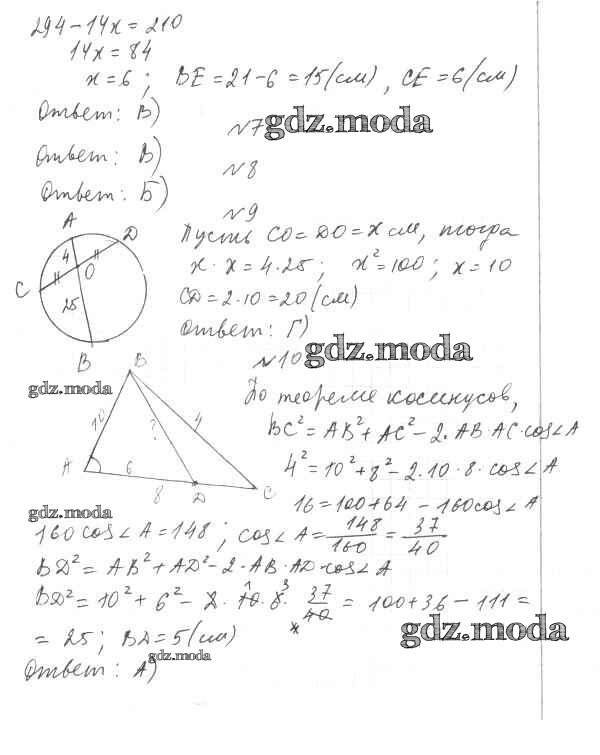 294-14x=210
14x=84
x=6; BE=21-6=15(см), CE=6(см)
Ответ: В)
№7 gdz.moda
Ответ: В)
№8
Ответ: Б)
№9
A
D
4
O
C
25
B
Пусть CO=DO=x см, тогда
x·x=4·25; x²=100; x=10
CD=2·10=20(см)
Ответ: Г)
№10 gdz.moda
gdz.moda
B
10
?
4
A
6
8
D
C
По теореме косинусов,
BC²=AB²+AC²-2·AB·AC·cos∠A
4²=10²+8²-2·10·8·cos∠A
16=100+64-160cos∠A
gdz.moda
160cos∠A=148; cos∠A=148/160=37/40
BD²=AB²+AD²-2·AB·AD·cos∠A
BD²=10²+6²-2·10·6·37/40=100+36-111=
=25; BD=5(см)
gdz.moda
gdz.moda
Ответ: А)